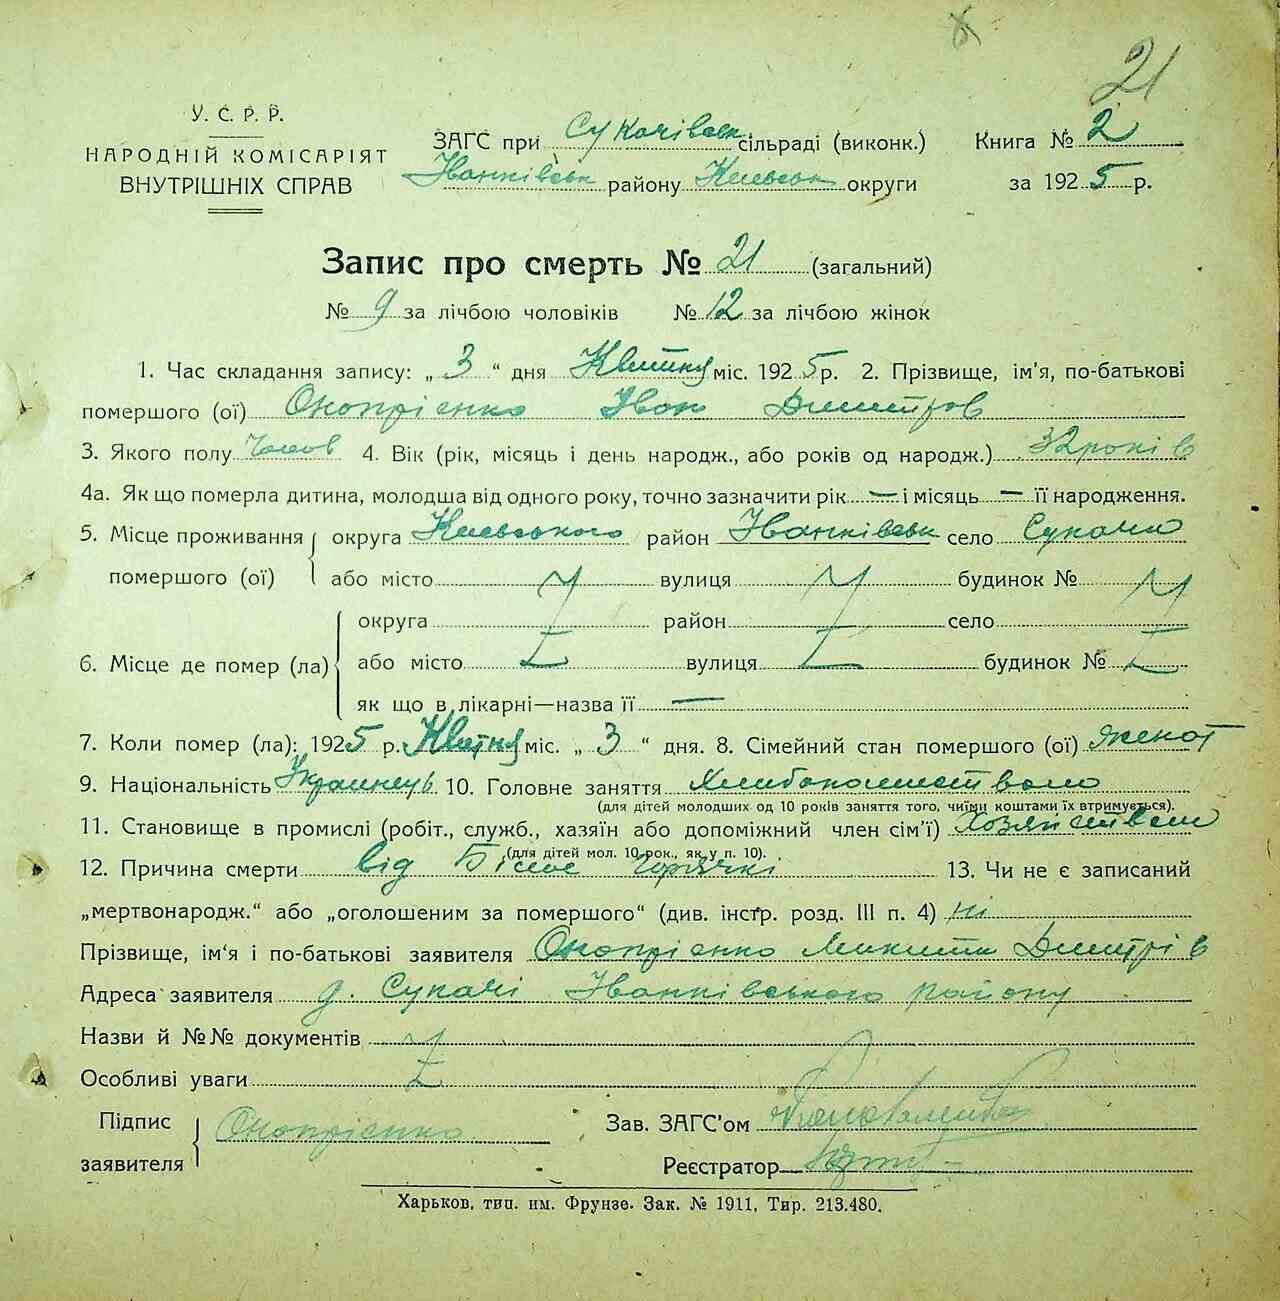 21
У. С. Р. Р.
НАРОДНІЙ КОМІСАРІЯТ
ВНУТРІШНІХ СПРАВ
ЗАГС при Сукачівськ сільраді (виконк.)
Іванківськ району Київськ округи
Книга № 2
за 1925 р.
Запис про смерть № 21 (загальний)
№ 9 за лічбою чоловіків № 12 за лічбою жінок
1. Час складання запису: „ 3 “ дня Квітня міс. 1925 р. 2. Прізвище, ім’я, по-батькові
помершого (ої) Онопрієнко Іван Дмитров
3. Якого полу Чолов 4. Вік (рік, місяць і день народж., або років од народж.) 32 років
4а. Як що померла дитина, молодша від одного року, точно зазначити рік — і місяць — її народження.
5. Місце проживання помершого (ої) округа Киевського район Іванківськ село Сукачи
або місто вулиця будинок №
6. Місце де помер (ла) округа район село
або місто вулиця будинок №
як що в лікарні—назва її —
7. Коли помер (ла): 1925 р. Квітня міс. „ 3 “ дня. 8. Сімейний стан помершого (ої) женат
9. Національність Украинець 10. Головне заняття Хлибопашеством
(для дітей молодших од 10 років заняття того, чиїми коштами їх втримується).
11. Становище в промислі (робіт., служб., хазяїн або допоміжний член сім’ї) Хозяйством
(для дітей мол. 10 рок., як у п. 10).
12. Причина смерти від Білос горячкі 13. Чи не є записаний
„мертвонародж.“ або „оголошеним за помершого“ (див. інстр. розд. III п. 4) ні
Прізвище, ім‘я і по-батькові заявителя Онопрієнко Микита Дмитрів
Адреса заявителя д. Сукачі Іванківського району
Назви й №№ документів
Особливі уваги
Підпис заявителя Онопрієнко
Зав. ЗАГС’ом
Реєстратор
Харьков, тип. им. Фрунзе. Зак. № 1911, Тир. 213.480.